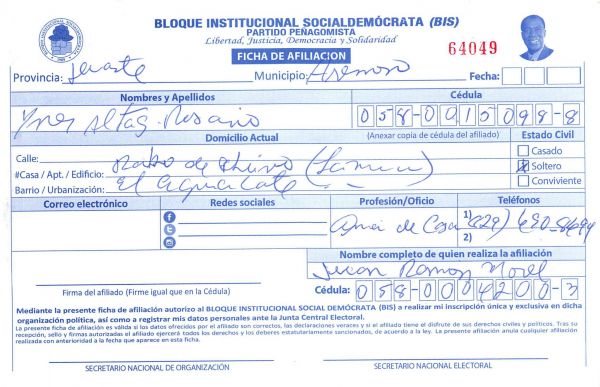 BLOQUE INSTITUCIONAL SOCIALDEMÓCRATA (BIS)
PARTIDO PEÑAGOMISTA
Libertad, Justicia, Democracia y Solidaridad
FICHA DE AFILIACION
64049
Provincia: Duarte Municipio: Arenoso Fecha:
Nombres y Apellidos Cédula
Altag. Rosario 058-0015098-8
Domicilio Actual (Anexar copia de cédula del afiliado) Estado Civil
Calle: Rabo de
#Casa / Apt. / Edificio:
Barrio / Urbanización: El Aguacate
Casado
Soltero
Conviviente
Correo electrónico Redes sociales Profesión/Oficio Teléfonos
Ama de Casa 1)(829) 690-8694
2)
Nombre completo de quien realiza la afiliación
Juan Ramon Morel
Firma del afiliado (Firme igual que en la Cédula) Cédula: 058-0004200-3
Mediante la presente ficha de afiliación autorizo al BLOQUE INSTITUCIONAL SOCIAL DEMÓCRATA (BIS) a realizar mi inscripción única y exclusiva en dicha
organización política, así como a registrar mis datos personales ante la Junta Central Electoral.
La presente ficha de afiliación es válida si los datos ofrecidos por el afiliado son correctos, las declaraciones veraces y si el afiliado tiene el disfrute de sus derechos civiles y políticos. Tras su
recepción, sello y firmas autorizadas el afiliado ejercerá todos los derechos y los deberes estatutariamente sancionados, de acuerdo a la ley. La presente afiliación anula cualquier afiliación
realizada con anterioridad a la fecha que aparece en esta ficha.
SECRETARIO NACIONAL DE ORGANIZACIÓN SECRETARIO NACIONAL ELECTORAL